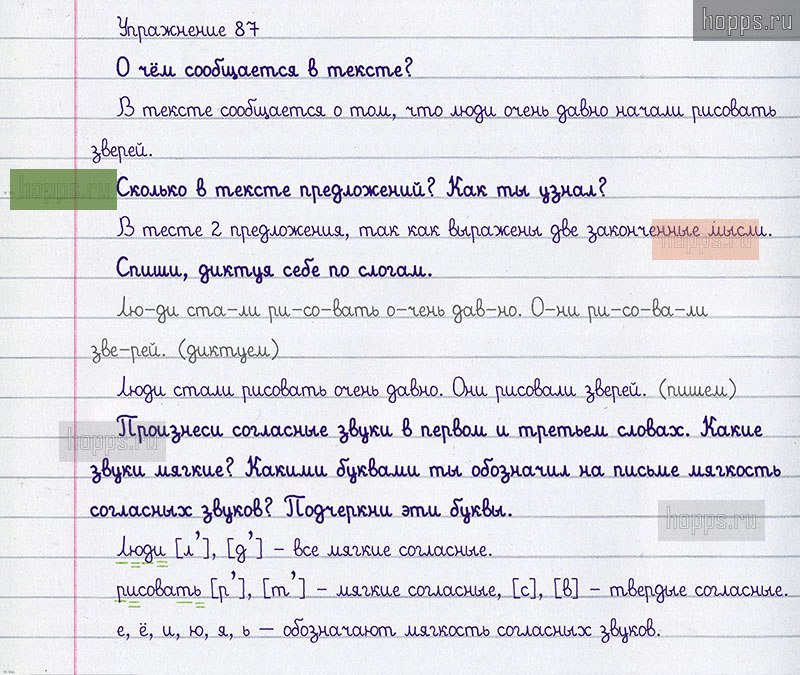 hopps.ru
Упражнение 87
О чём сообщается в тексте?
В тексте сообщается о том, что люди очень давно начали рисовать
зверей.
hopps.ru
Сколько в тексте предложений? Как ты узнал?
В тесте 2 предложения, так как выражены две законченные мысли.
hopps.ru
Спиши, диктуя себе по слогам.
Лю-ди ста-ли ри-со-вать о-чень дав-но. О-ни ри-со-ва-ли
зве-рей. (диктуем)
Люди стали рисовать очень давно. Они рисовали зверей. (пишем)
hopps.ru
Произнеси согласные звуки в первом и третьем словах. Какие
звуки мягкие? Какими буквами ты обозначил на письме мягкость
согласных звуков? Подчеркни эти буквы.
hopps.ru
Люди [л’], [д’] – все мягкие согласные.
рисовать [р’], [т’] – мягкие согласные, [с], [в] – твердые согласные.
е, ё, и, ю, я, ь — обозначают мягкость согласных звуков.